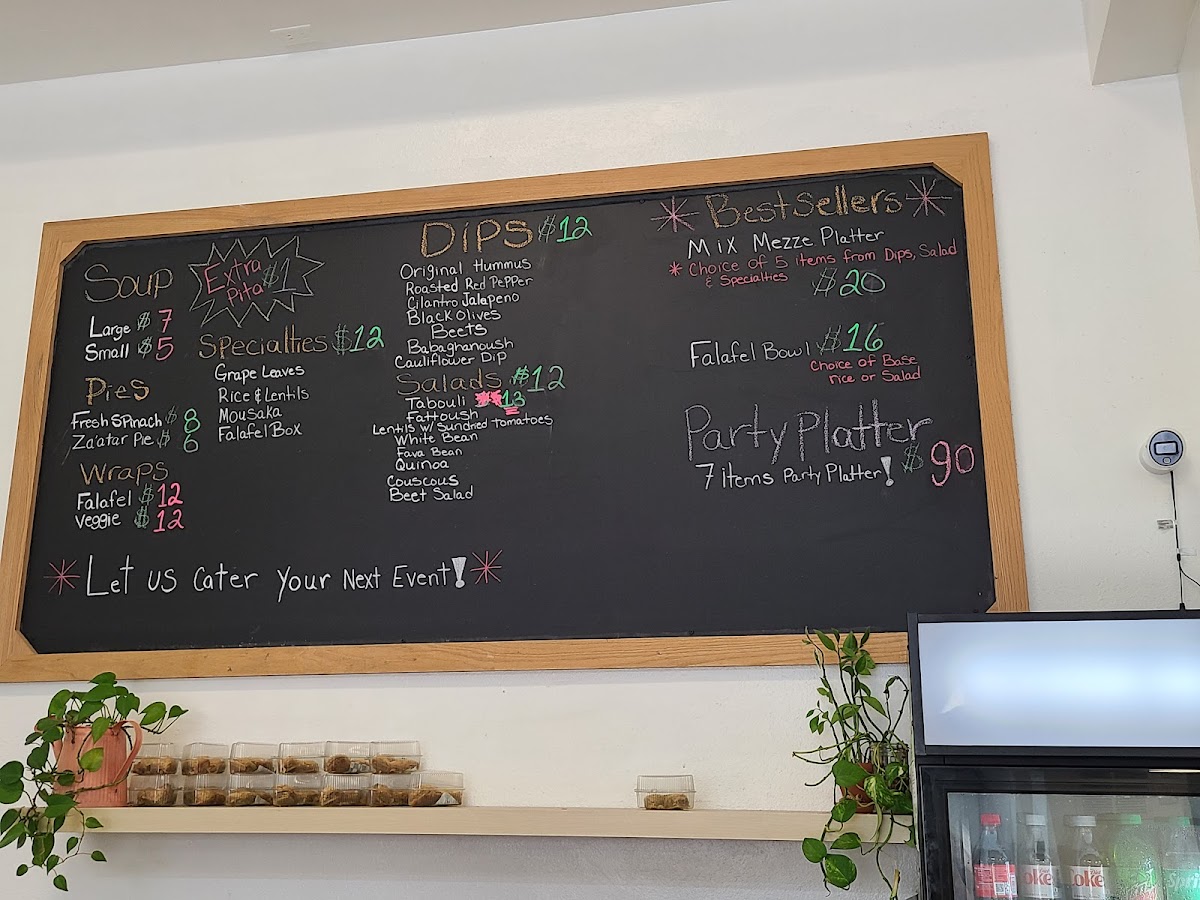 Soup
Large $7
Small $5
Extra
Pita $1
Pies
Fresh Spinach $8
Za'atar Pie $6
Wraps
Falafel $12
Veggie $12
Specialties $12
Grape Leaves
Rice & Lentils
Mousaka
Falafel Box
Dips $12
Original Hummus
Roasted Red Pepper
Cilantro Jalapeno
Black Olives
Beets
Babaghanoush
Cauliflower Dip
Salads $12
Tabouli 13
Fattoush
Lentils w/ Sundried Tomatoes
White Bean
Fava Bean
Quinoa
Couscous
Beet Salad
* Best Sellers *
Mix Mezze Platter
* Choice of 5 items from Dips, Salad
& Specialties
$20
Falafel Bowl $16
Choice of Base
rice or Salad
Party Platter
7 items Party Platter! $90
* Let us Cater Your Next Event! *
Coke
Coke
Sprite